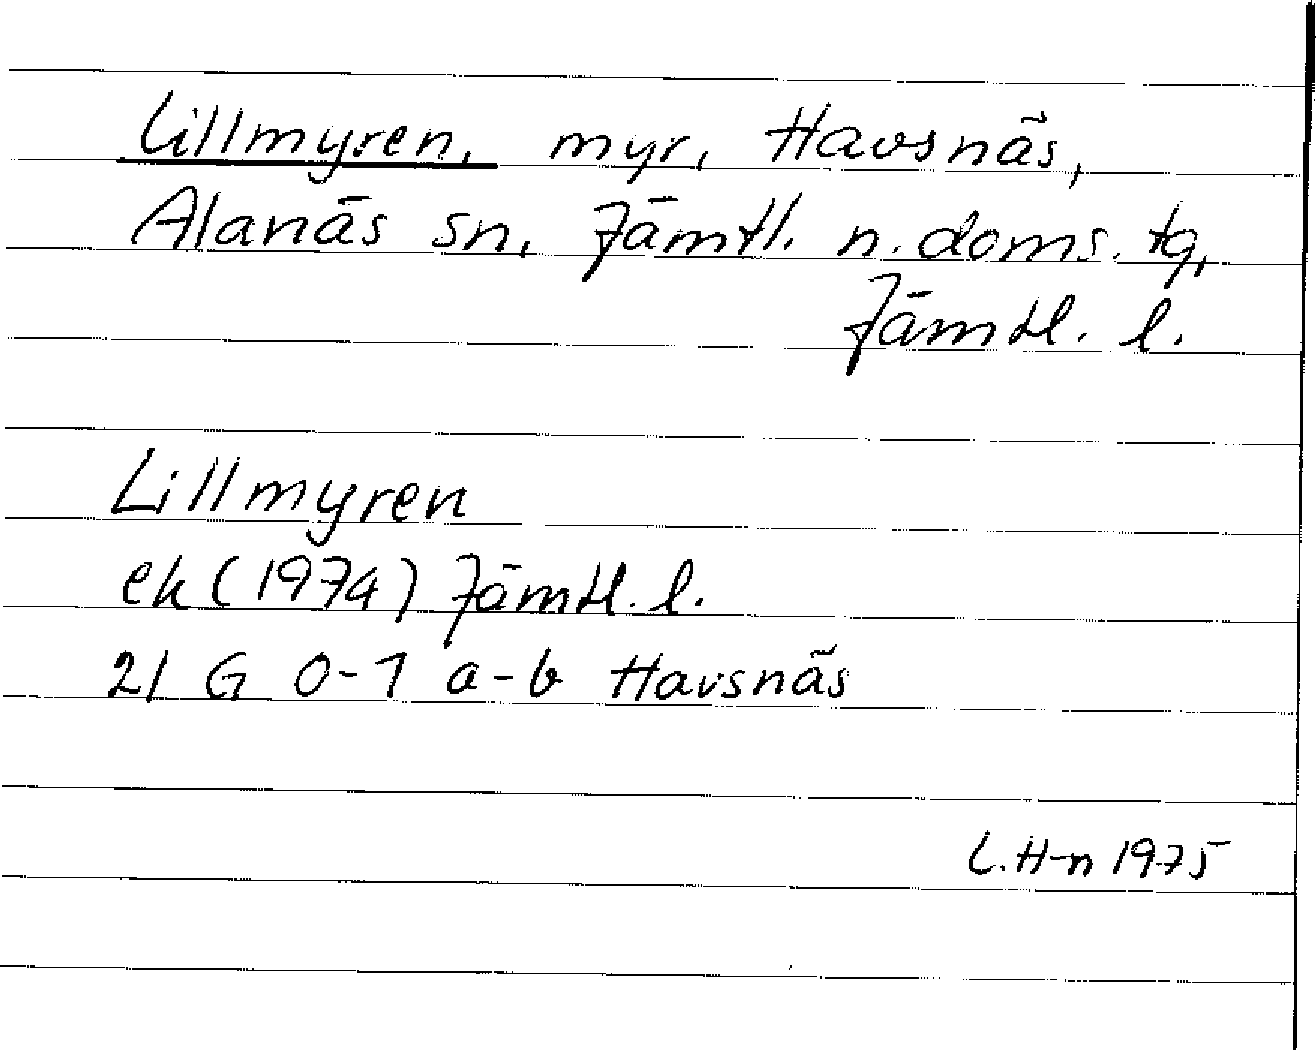 Lillmyren, myr, Havsnäs,
Alanäs sn, Jämtl. n. doms. tg,
Jämtl. l.
Lillmyren
ek (1974) Jämtl. l.
21 G 0-1 a-b Havsnäs
L. H-n 1975